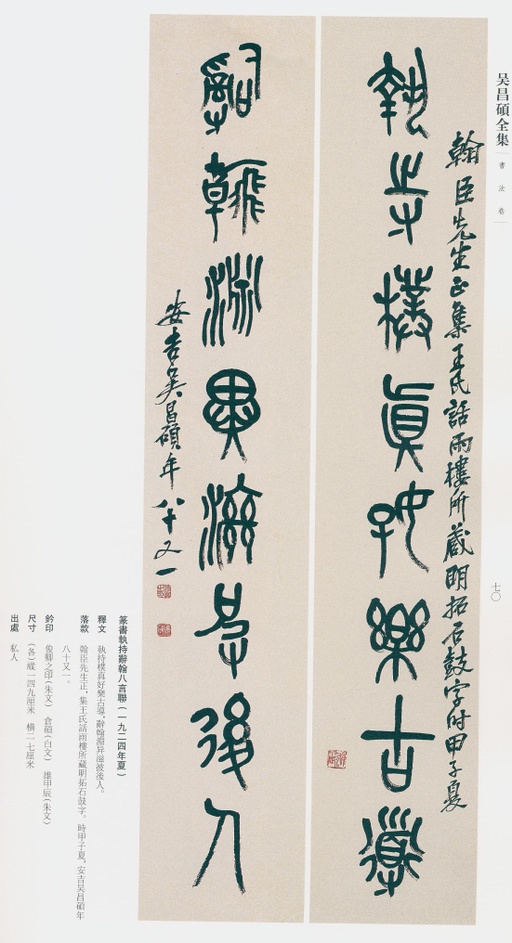 吴昌碩全集
書法卷
七〇
翰臣先生正集王氏話雨樓所藏明拓石鼓字时甲子夏
執持樸真好樂古導
辭翰淵異滋後人
安吉吴昌碩年八十又一
篆書執持辭翰八言聯（一九二四年夏）
釋文 執持樸真好樂古導，辭翰淵异滋波後人。
落款 翰臣先生正，集王氏話雨樓所藏明拓石鼓字。時甲子夏，安吉吴昌碩年
八十又一。
鈐印 俊卿之印（朱文） 倉碩（白文） 雄甲辰（朱文）
尺寸 （各）縱一四九厘米 横二七厘米
出處 私人